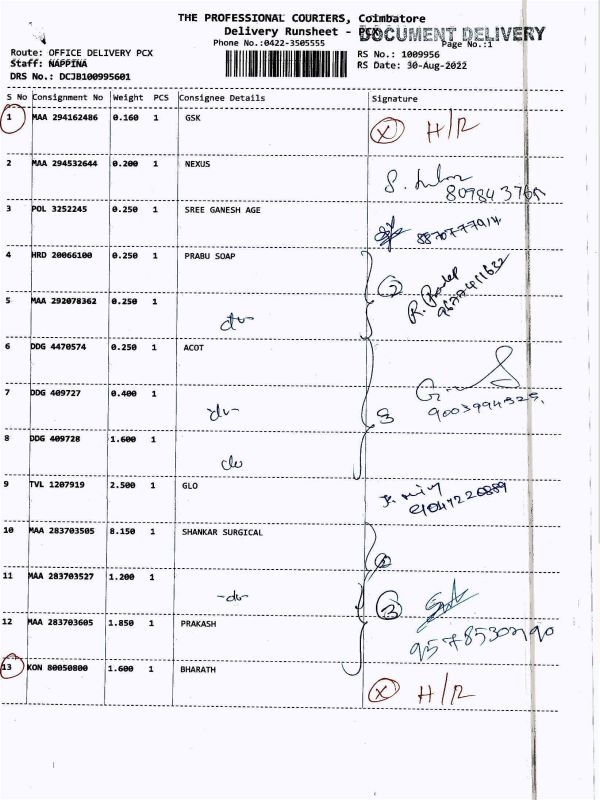 THE PROFESSIONAL COURIERS, Coimbatore
Delivery Runsheet - PCX
DOCUMENT DELIVERY
Phone No.:0422-3505555
Page No.:1
Route: OFFICE DELIVERY PCX
RS No.: 1009956
Staff: NAPPINA
RS Date: 30-Aug-2022
DRS No.: DCJB100995601
S No Consignment No Weight PCS Consignee Details Signature
1 MAA 294162486 0.160 1 GSK X H/R
2 MAA 294532644 0.200 1 NEXUS
3 POL 3252245 0.250 1 SREE GANESH AGE
8870777914
4 HRD 20066100 0.250 1 PRABU SOAP 2
5 MAA 292078362 0.250 1
6 DDG 4470574 0.250 1 ACOT
7 DDG 409727 0.400 1 3
8 DDG 409728 1.600 1
9 TVL 1207919 2.500 1 GLO
10 MAA 283703505 8.150 1 SHANKAR SURGICAL
11 MAA 283703527 1.200 1 3
12 MAA 283703605 1.850 1 PRAKASH
13 KON 80050800 1.600 1 BHARATH
X H/R